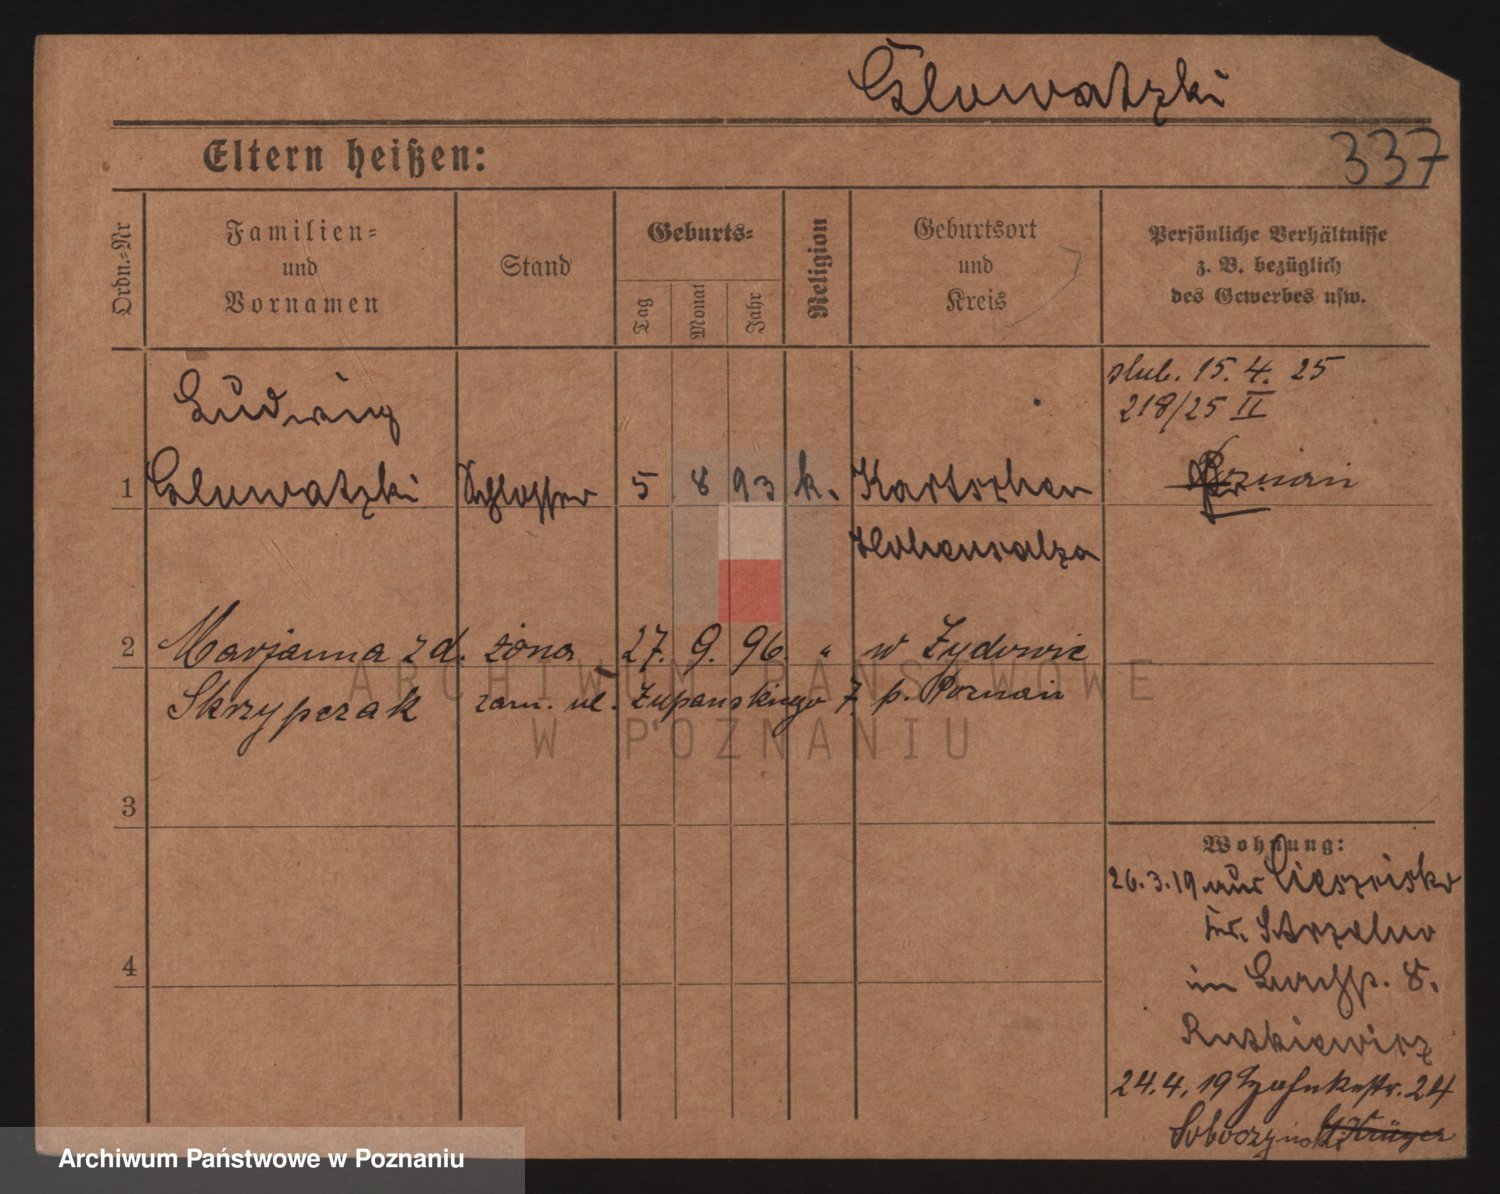 Glowatzki
337
Eltern heißen:
Ordn.-Nr
Familien- und Vornamen
Stand
Geburts-
Tag
Monat
Jahr
Religion
Geburtsort und Kreis
Persönliche Verhältnisse z. B. bezüglich des Gewerbes usw.
slub. 15. 4. 25
218/25 II
Ludwig
1 Glowatzki Schlosser 5 8 93 k. Poznań
Hohensalza
2 Marjanna z d. żona 27. 9. 96. " w Żydowie
Skrzypczak zam. ul. Żupańskiego 7. p. Poznań
3
4
Wohnung:
26.3.19 aus
Kr. Strzelno
in 8.
Rutkiewicz
24.4.19 24
ARCHIWUM PAŃSTWOWE
W POZNANIU
Archiwum Państwowe w Poznaniu